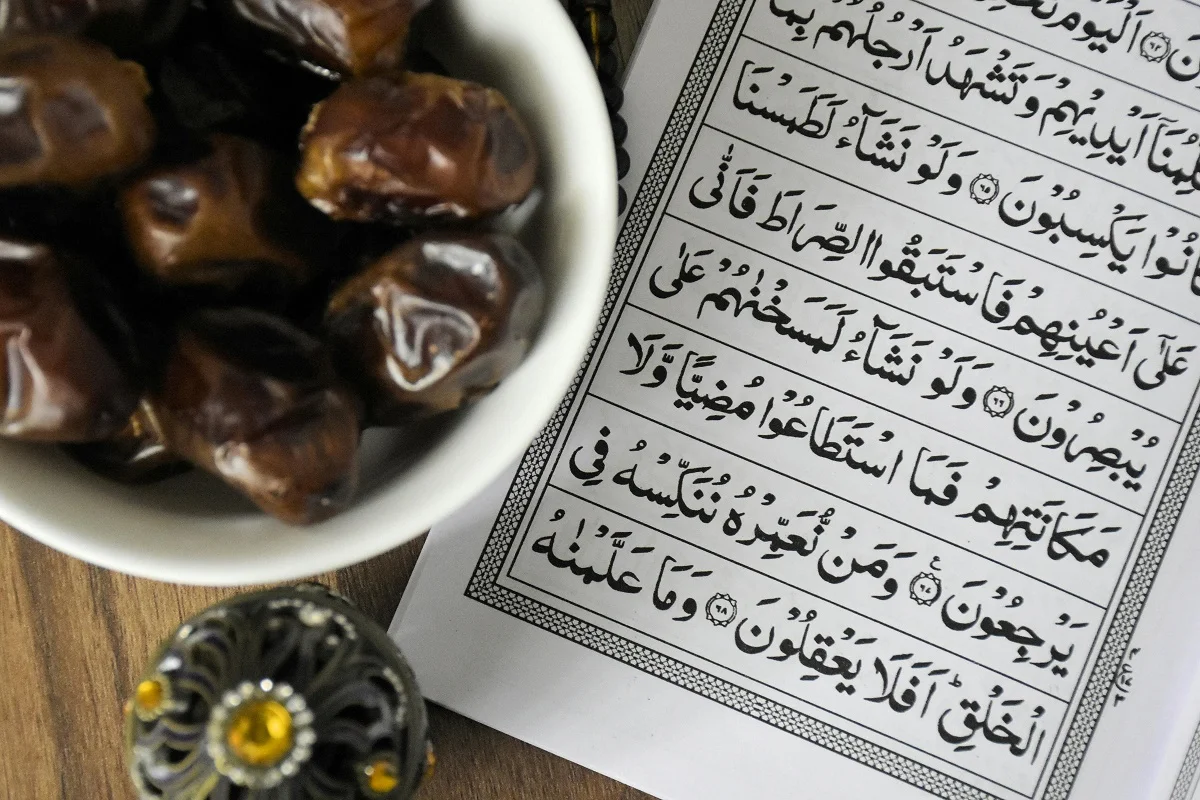 ن ﴿٦٤﴾ اَلْيَوْمَ
لِّمُنَآ اَيْدِيْهِمْ وَتَشْهَدُ اَرْجُلُهُمْ بِمَا
كَانُوْا يَكْسِبُوْنَ ﴿٦٥﴾ وَلَوْ نَشَآءُ لَطَمَسْنَا
عَلٰٓى اَعْيُنِهِمْ فَاسْتَبَقُوا الصِّرَاطَ فَاَنّٰى
يُبْصِرُوْنَ ﴿٦٦﴾ وَلَوْ نَشَآءُ لَمَسَخْنٰهُمْ عَلٰى
مَكَانَتِهِمْ فَمَا اسْتَطَاعُوْا مُضِيًّا وَّلَا
يَرْجِعُوْنَ ﴿٦٧﴾ ع وَمَنْ نُّعَمِّرْهُ نُنَكِّسْهُ فِى
الْخَلْقِ ؕ اَفَلَا يَعْقِلُوْنَ ﴿٦٨﴾ وَمَا عَلَّمْنٰهُ